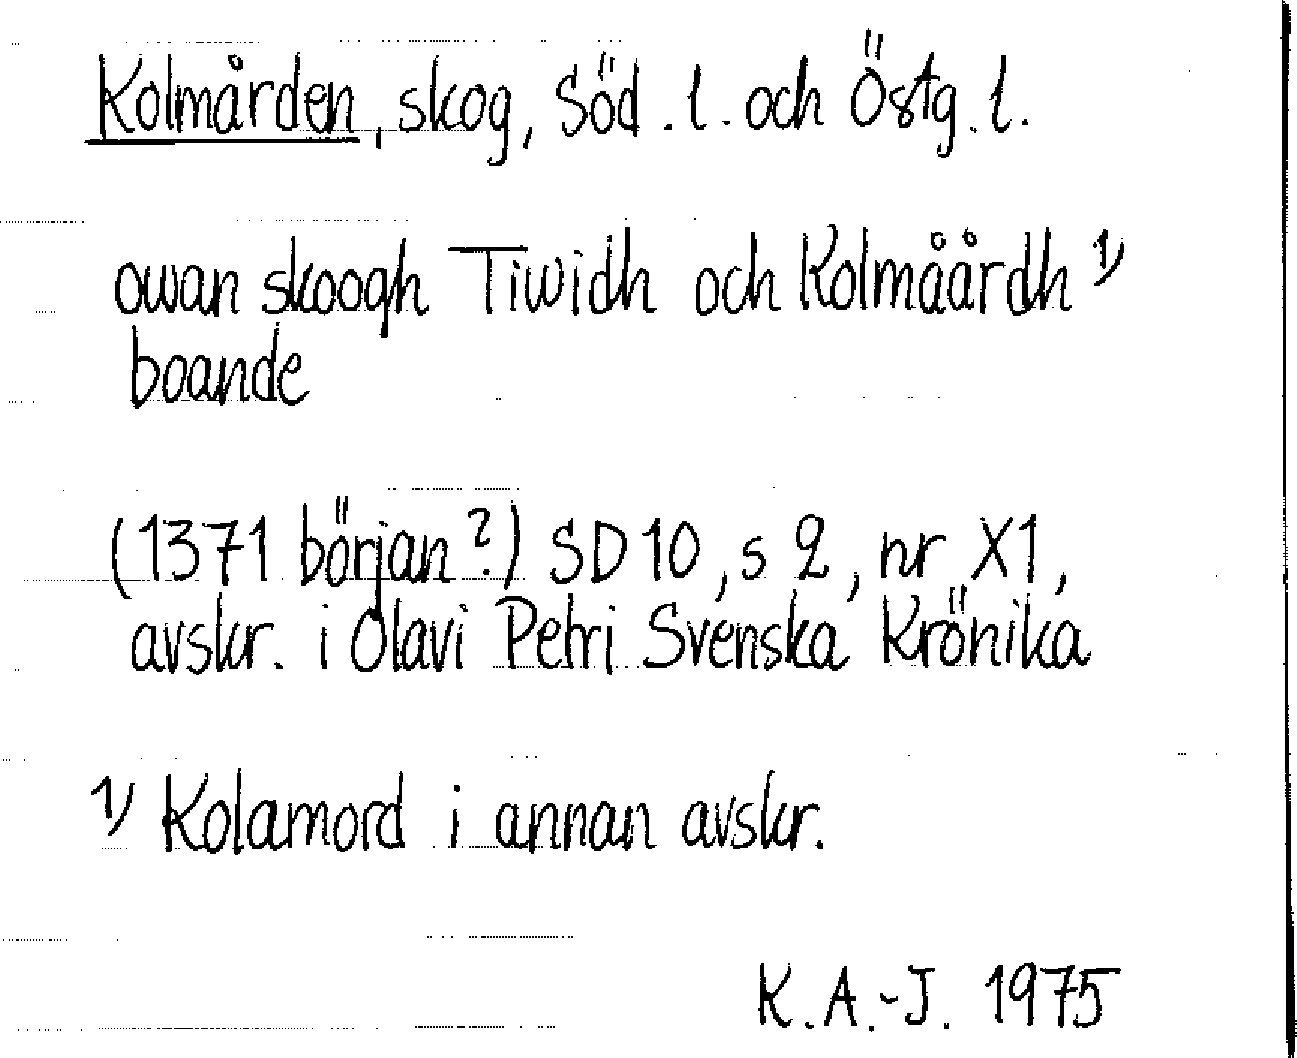 Kolmården, skog, Söd. l. och Östg. l.
owan skoogh Tiwidh och Kolmåårdh 1)
boande
(1371 början?) SD 10, s 2, nr X1,
avskr. i Olavi Petri Svenska Krönika
1) Kolamord i annan avskr.
K.A.-J. 1975